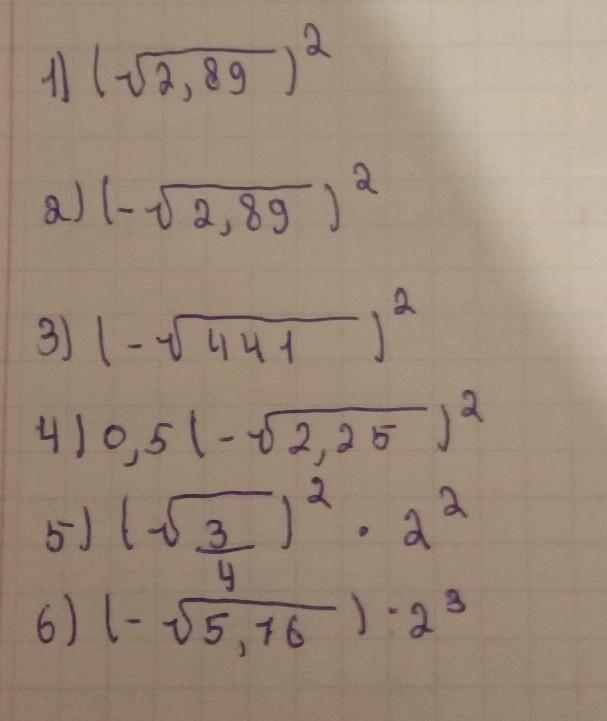 1) (√2,89)²
2) (-√2,89)²
3) (-√441)²
4) 0,5(-√2,25)²
5) (√3/4)² · 2²
6) (-√5,76) · 2³